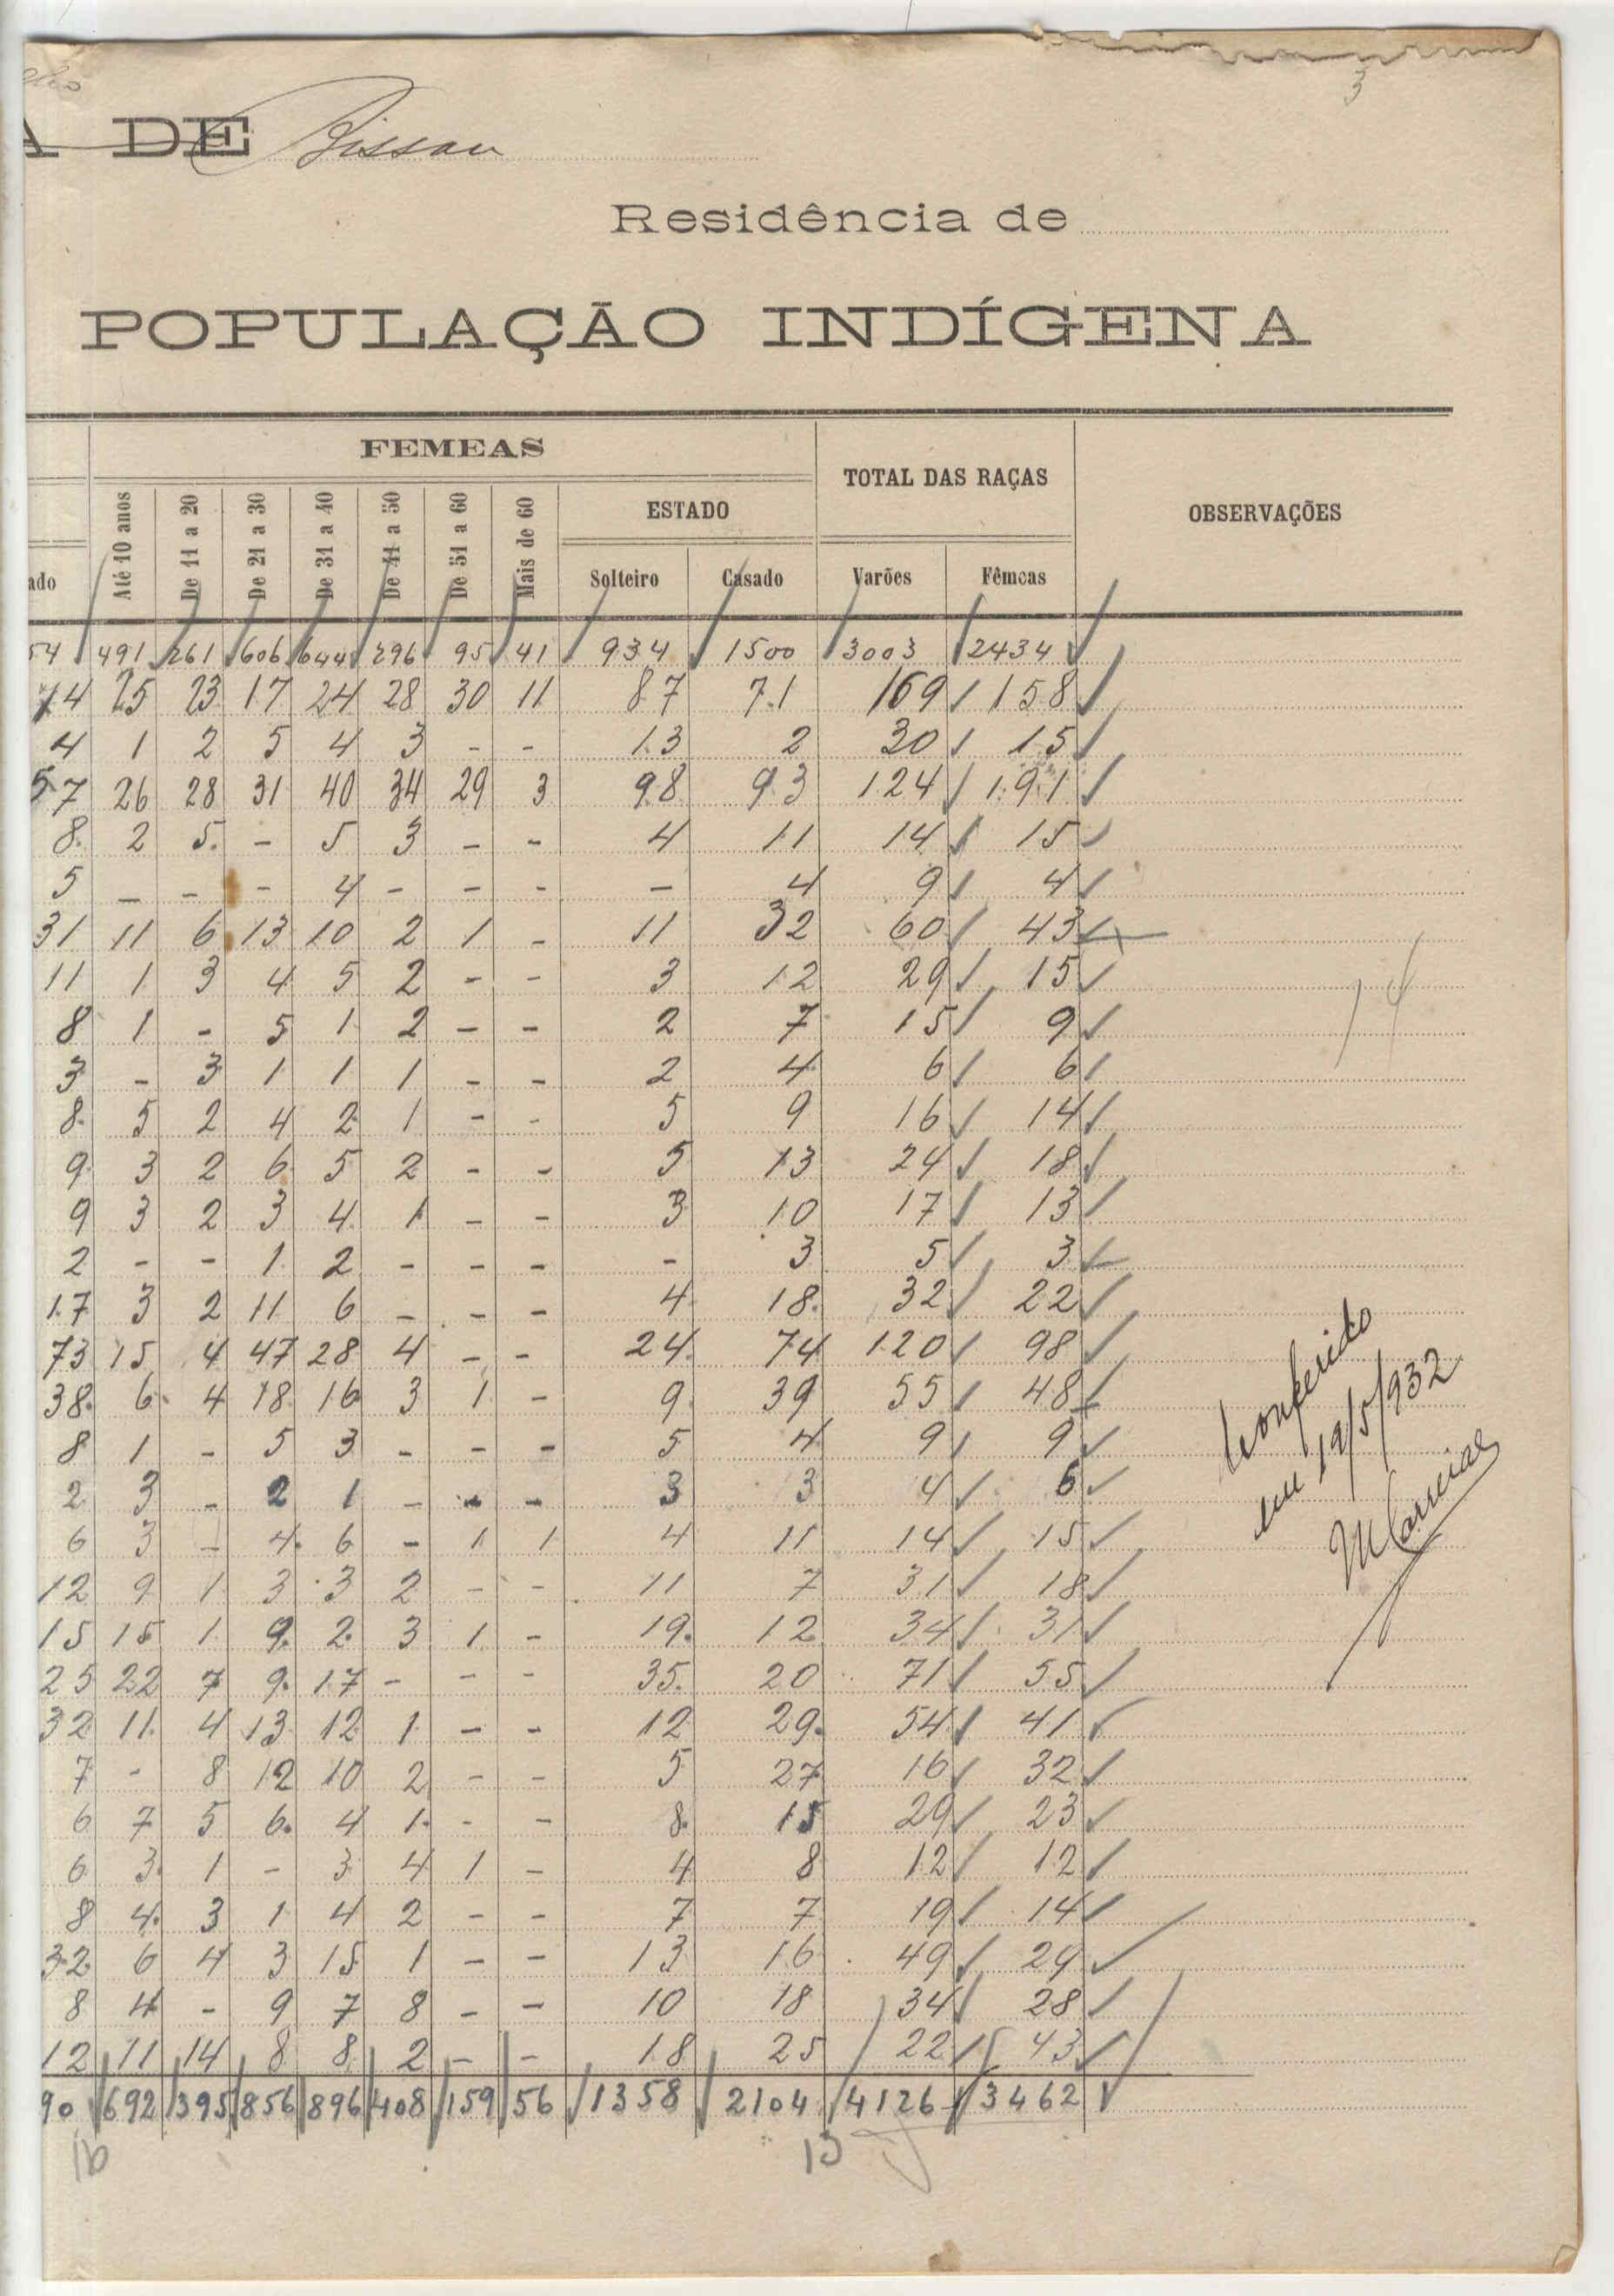 3
A DE Bissau
Residência de
POPULAÇÃO INDÍGENA
FEMEAS
TOTAL DAS RAÇAS
OBSERVAÇÕES
ESTADO
ado Até 10 anos De 11 a 20 De 21 a 30 De 31 a 40 De 41 a 50 De 51 a 60 Mais de 60 Solteiro Casado Varões Fêmeas
54 491 261 606 644 296 95 41 934 1500 3003 2434
14 25 23 17 24 28 30 11 87 71 169 158
4 1 2 5 4 3 - - 13 2 30 15
57 26 28 31 40 34 29 3 98 93 124 191
8 2 5 - 5 3 - - 4 11 14 15
5 - - - 4 - - - - 4 9 4
31 11 6 13 10 2 1 - 11 32 60 43
11 1 3 4 5 2 - - 3 12 29 15
8 1 - 5 1 2 - - 2 7 15 9
3 - 3 1 1 1 - - 2 4 6 6
8 5 2 4 2 1 - - 5 9 16 14
9 3 2 6 5 2 - - 5 13 24 18
9 3 2 3 4 1 - - 3 10 17 13
2 - - 1 2 - - - - 3 5 3
17 3 2 11 6 - - - 4 18 32 22
73 15 4 47 28 4 - - 24 74 120 98
38 6 4 18 16 3 1 - 9 39 55 48
8 1 - 5 3 - - - 5 4 9 9
2 3 - 2 1 - - - 3 3 4 6
6 3 - 4 6 - 1 1 4 11 14 15
12 9 1 3 3 2 - - 11 7 31 18
15 15 1 9 2 3 1 - 19 12 34 31
25 22 7 9 17 - - - 35 20 71 55
32 11 4 13 12 1 - - 12 29 54 41
7 - 8 12 10 2 - - 5 27 16 32
6 7 5 6 4 1 - - 8 15 29 23
6 3 1 - 3 4 1 - 4 8 12 12
8 4 3 1 4 2 - - 7 7 19 14
32 6 4 3 15 1 - - 13 16 49 29
8 4 - 9 7 8 - - 10 18 34 28
12 11 14 8 8 2 - - 18 25 22 43
90 692 395 856 896 408 159 56 1358 2104 4126 3462
Conferido
em 19/5/932
16